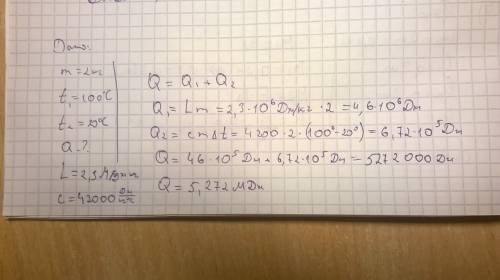 Дано:
m = 2кг
t₁ = 100°C
t₂ = 20°C
Q - ?
L = 2,3 МДж/кг
c = 42000 Дж/кг°C
Q = Q₁ + Q₂
Q₁ = Lm = 2,3·10⁶ Дж/кг · 2 = 4,6·10⁶ Дж
Q₂ = cmΔt = 4200·2·(100°-20°) = 6,72·10⁵ Дж
Q = 46·10⁵ Дж + 6,72·10⁵ Дж = 5272 000 Дж
Q = 5,272 МДж